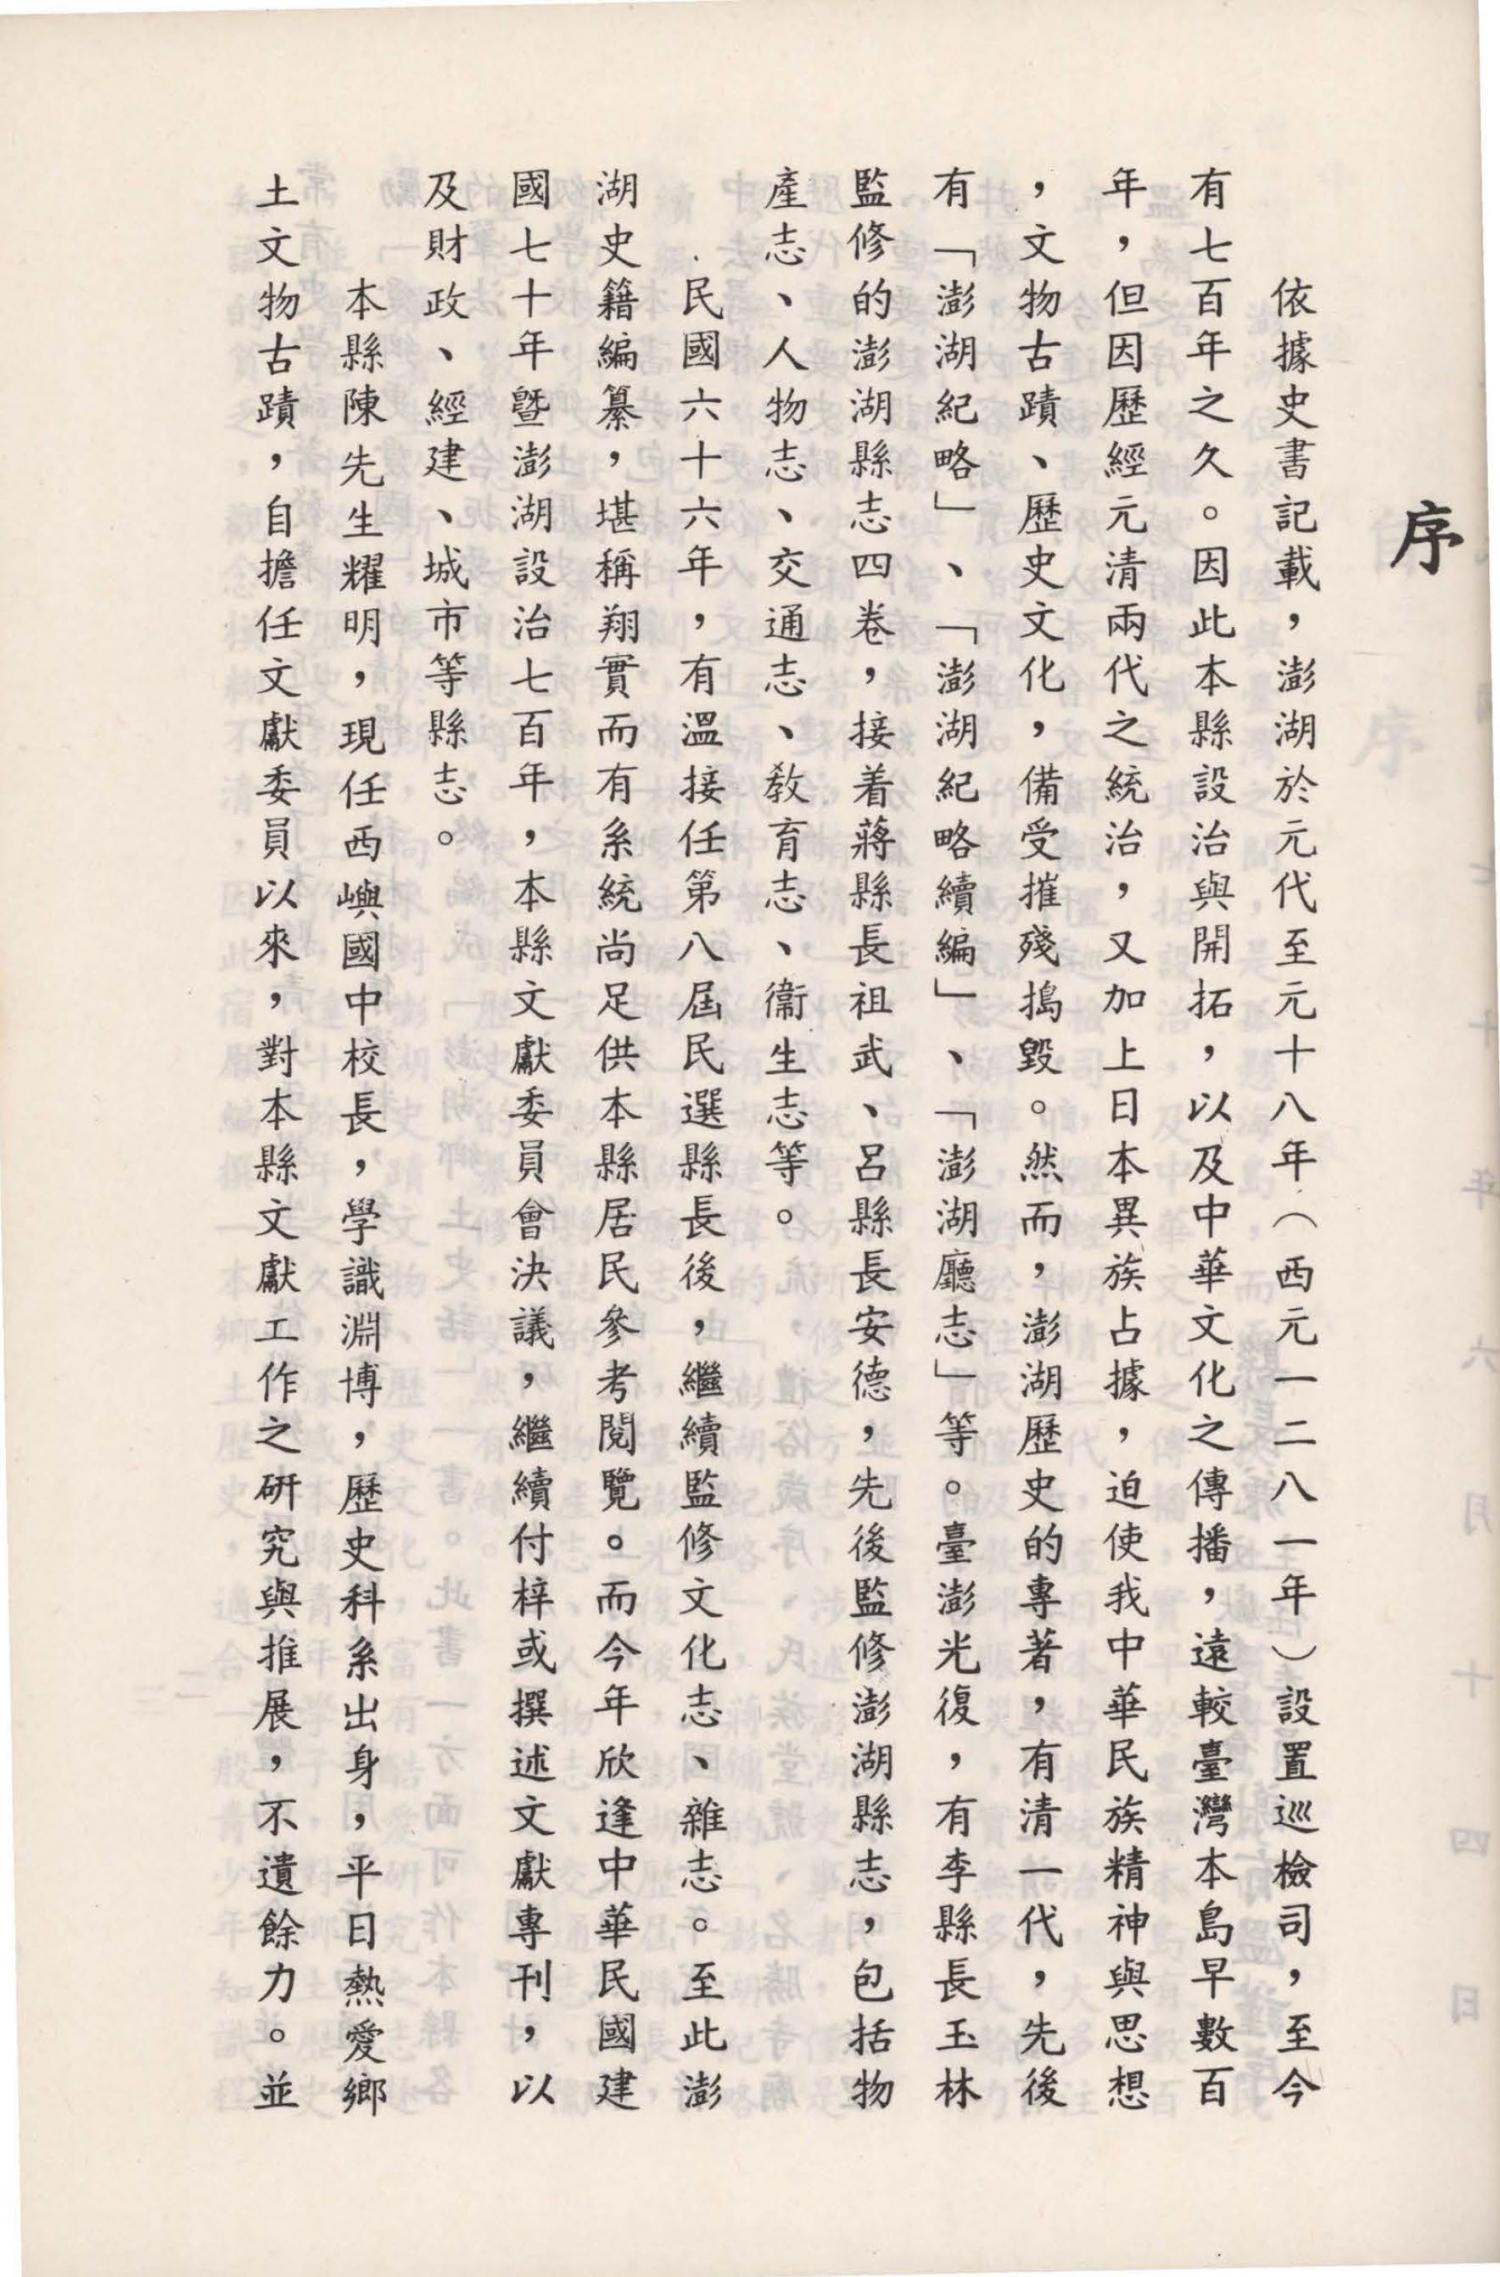 序
依據史書記載，澎湖於元代至元十八年（西元一二八一年）設置巡檢司，至今
有七百年之久。因此本縣設治與開拓，以及中華文化之傳播，遠較臺灣本島早數百
年，但因歷經元清兩代之統治，又加上日本異族占據，迫使我中華民族精神與思想
，文物古蹟、歷史文化，備受摧殘搗毀。然而，澎湖歷史的專著，有清一代，先後
有「澎湖紀略」、「澎湖紀略續編」、「澎湖廳志」等。臺澎光復，有李縣長玉林
監修的澎湖縣志四卷，接着蔣縣長祖武、呂縣長安德，先後監修澎湖縣志，包括物
產志、人物志、交通志、教育志、衞生志等。
民國六十六年，有溫接任第八屆民選縣長後，繼續監修文化志、雜志。至此澎
湖史籍編纂，堪稱翔實而有系統尚足供本縣居民參考閱覽。而今年欣逢中華民國建
國七十年曁澎湖設治七百年，本縣文獻委員會決議，繼續付梓或撰述文獻專刊，以
及財政、經建、城市等縣志。
本縣陳先生耀明，現任西嶼國中校長，學識淵博，歷史科系出身，平日熱愛鄉
土文物古蹟，自擔任文獻委員以來，對本縣文獻工作之研究與推展，不遺餘力。並